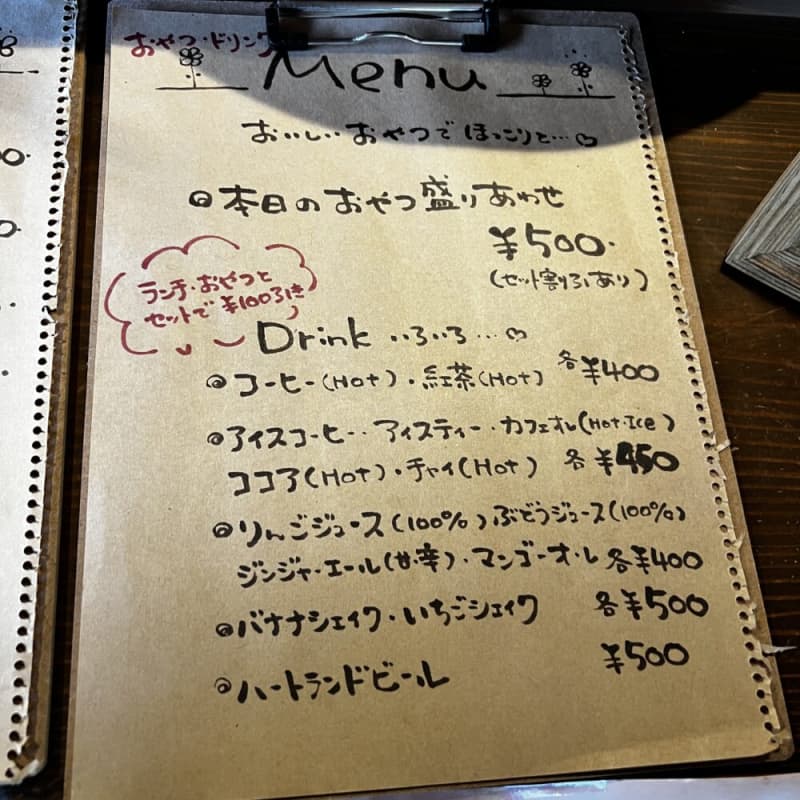 おやつ・ドリンク
Menu
おいしいおやつでほっこりと…♡
本日のおやつ盛りあわせ
¥500.
(セット割引あり)
ランチ・おやつと
セットで¥100引き
Drink いろいろ…♡
コーヒー(Hot)・紅茶(Hot) 各¥400
アイスコーヒー・アイスティー・カフェオレ(Hot・Ice)
ココア(Hot)・チャイ(Hot) 各¥450
りんごジュース(100%)ぶどうジュース(100%)
ジンジャーエール(甘・辛)・マンゴーオ・レ 各¥400
バナナシェイク・いちごシェイク 各¥500
ハートランドビール ¥500